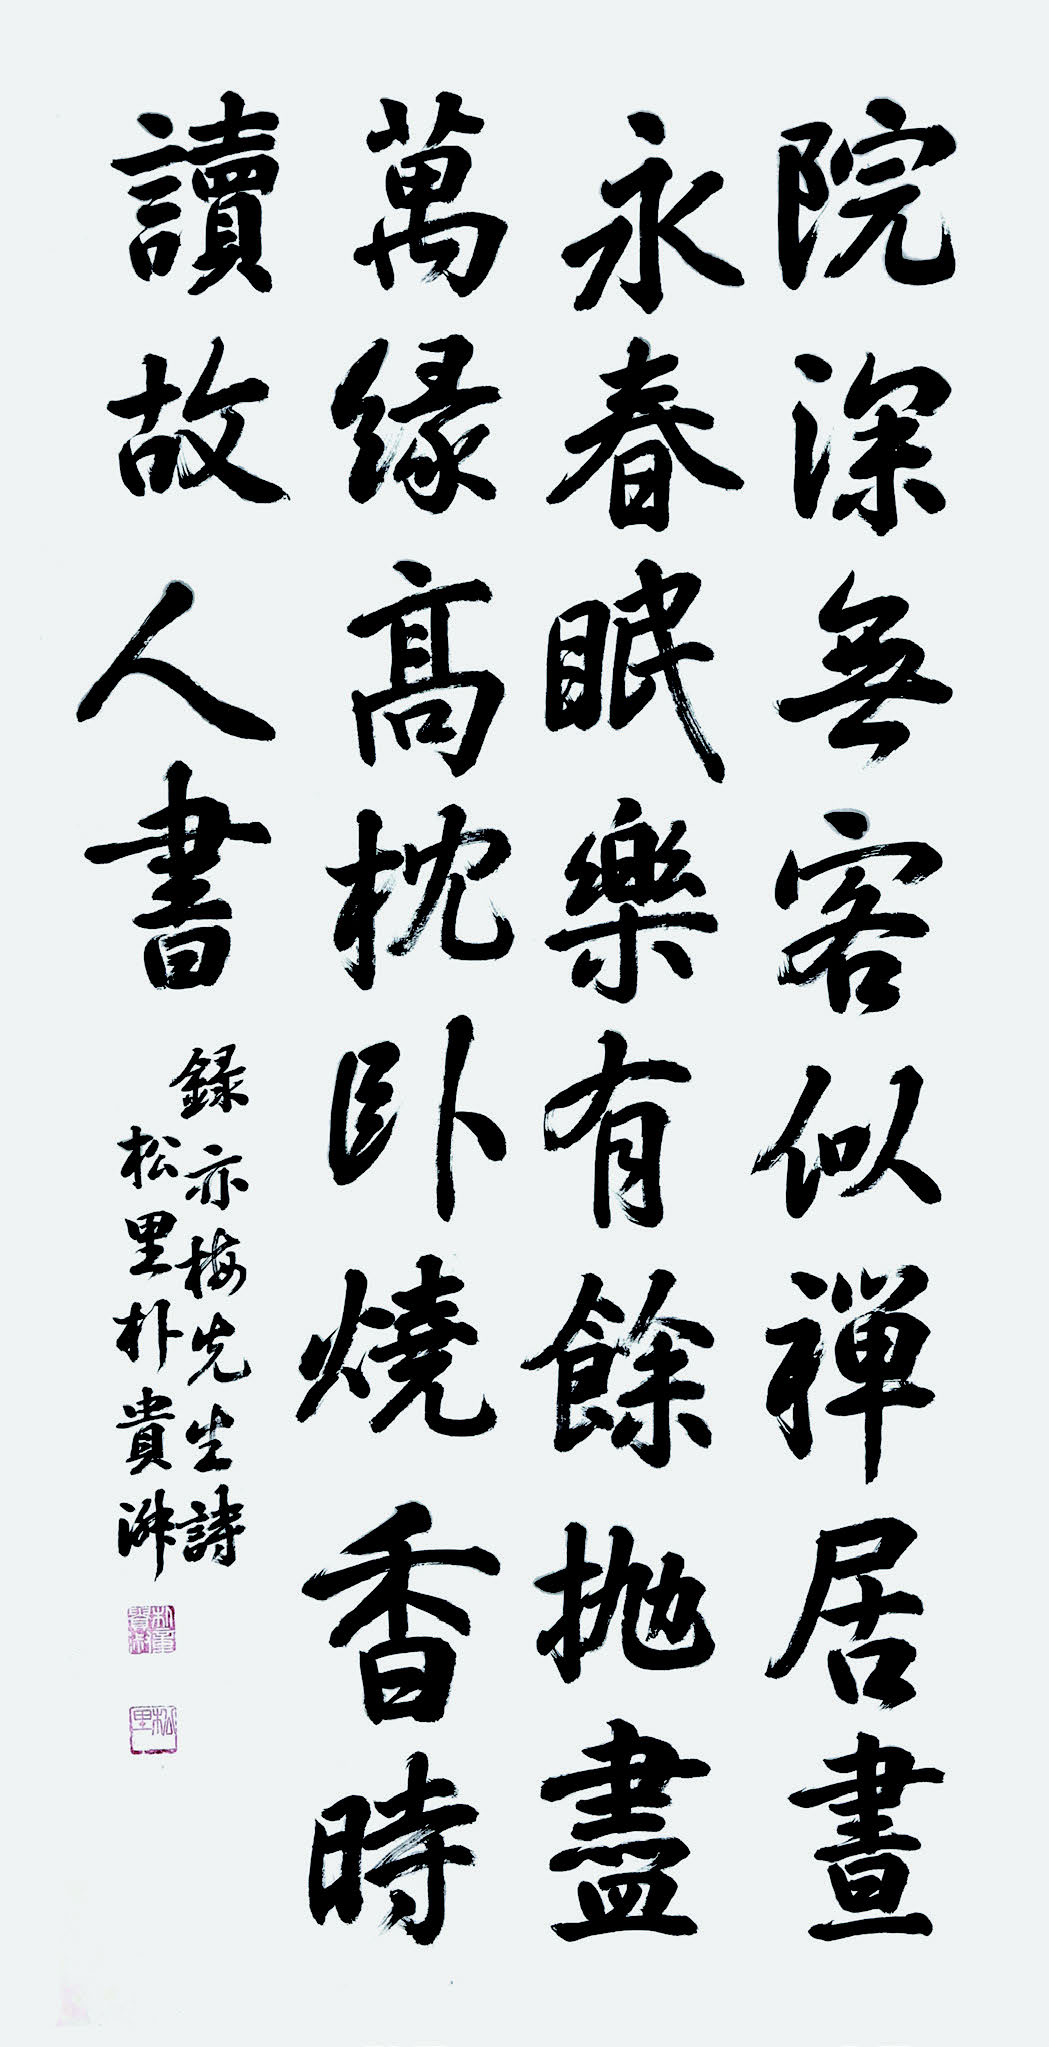 院深無客似禅居晝
永春眠樂有餘抛盡
萬縁高枕卧燒香時
讀故人書
錄亦梅先生詩
松里朴貴洙
松里